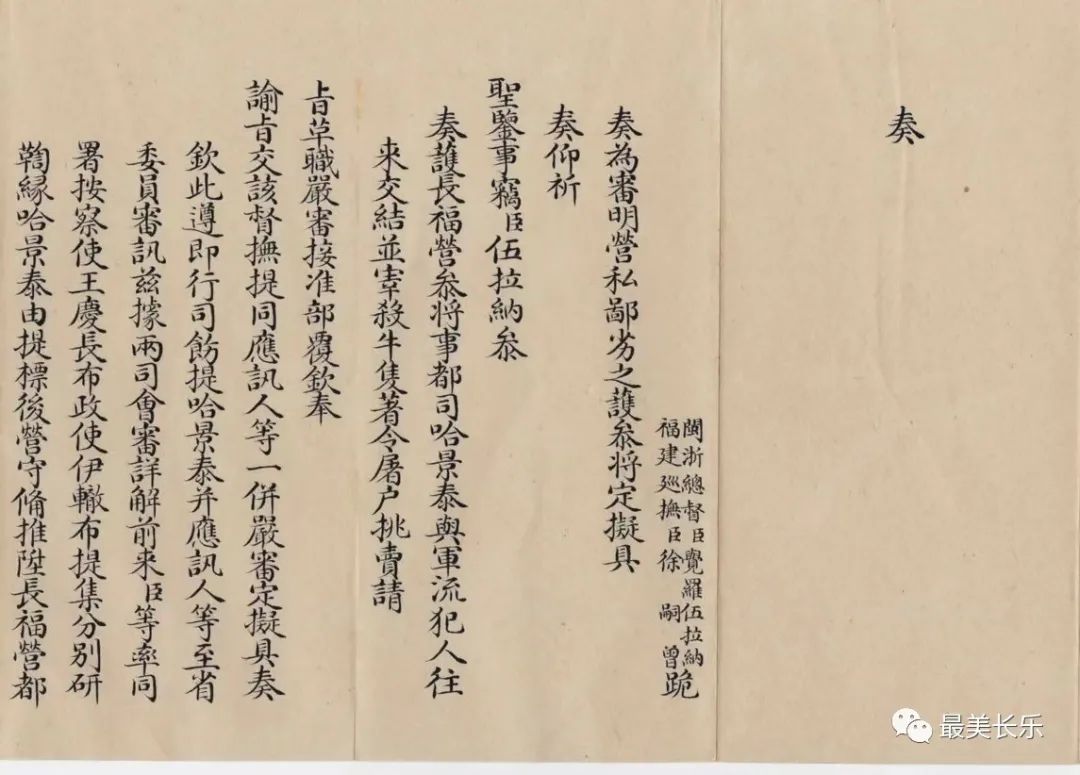 奏
閩浙總督臣覺羅伍拉納
福建廵撫臣徐嗣曾跪
奏為審明營私鄙劣之護叅将定擬具
奏仰祈
聖鑒事竊臣伍拉納叅
奏護長福營叅将事都司哈景泰與軍流犯人往
来交結並宰殺牛隻著令屠户挑賣請
旨革職嚴審接准部覆欽奉
諭旨交該督撫提同應訊人等一併嚴審定擬具奏
欽此遵即行司飭提哈景泰并應訊人等至省
委員審訊兹據兩司會審詳解前来臣等率同
署按察使王慶長布政使伊轍布提集分别研
鞫緣哈景泰由提標後營守俻推陞長福營都
最美长乐